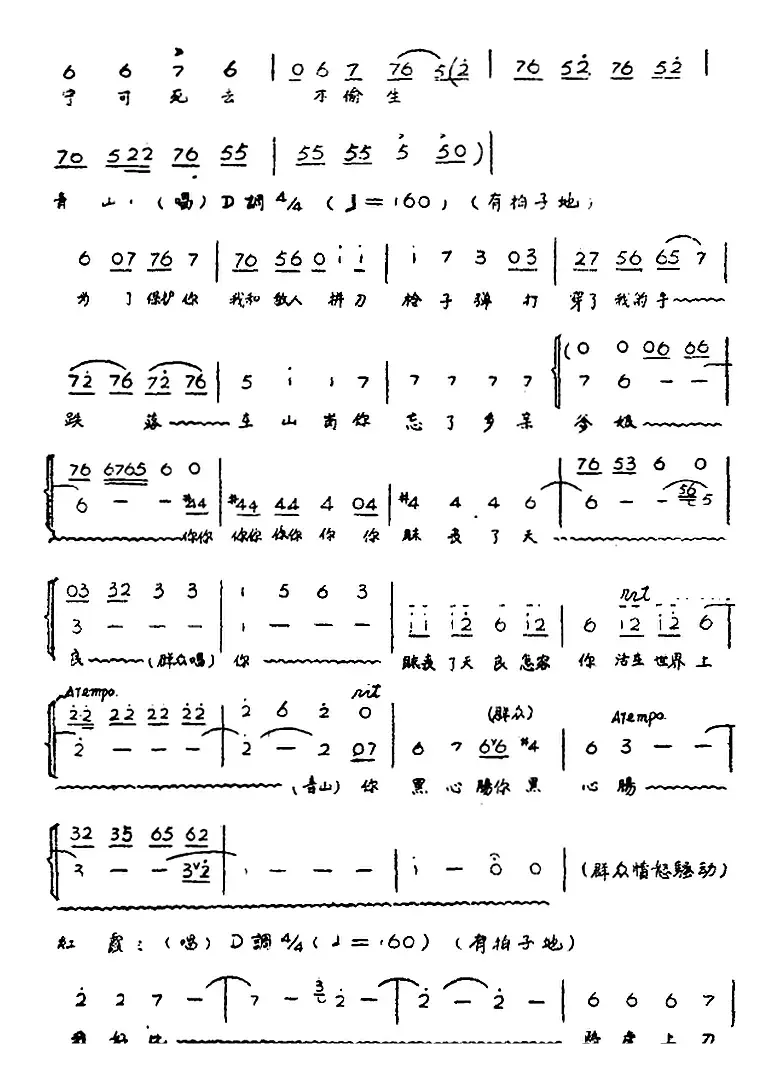 6 6 7 6 | 0 6 7 76 5(2 | 76 52 76 52 |
宁可死去 不偷生
70 522 76 55 | 55 55 5 50) |
青山:(唱)D調4/4(♩=160)(有拍子地)
6 07 76 7 | 76 56 0 i i | i 7 3 03 | 27 56 65 7
为了保护你 我和敌人拼刀 枪子弹打 穿了我的手
(0 0 06 66
72 76 72 76 | 5 i i 7 | 7 7 7 7 | 7 6 - -
跌落 在山崗你 忘了多亲 爹娘
76 6765 6 0 | 76 53 6 0
6 - - #44 | #44 44 4 04 | #4 4 4 6 | 6 - - 56 5
你你 你你你你你你 眛丧了天
03 32 3 3 | i 5 6 3 | rit
3 - - - | i - - - | ii i2 6 i2 | 6 i2 i2 6
良 (群众唱) 你 眛丧了天良怎容 你活在世界上
ATempo. rit (群众) ATempo.
22 22 22 22 | 2 6 2 0
2 - - - | 2 - 2 07 | 6 7 6v6 #4 | 6 3 - -
(青山)你 黑心腸你黑 心腸
32 35 65 62
3 - - 3v2 | i - - - | i - 0 0 | (群众愤怒騷动)
紅霞:(唱)D調4/4(♩=160)(有拍子地)
2 2 7 - | 7 - 3 2 - | 2 - 2 - | 6 6 6 7
上刀